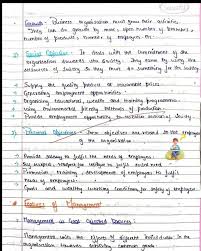 Growth - Business organisations must grow their activities.
They can do growth by more, open number of branches,
number of products, number of employees etc.
2) Social Objective - It deals with the commitment of the
organisation towards the society. They earn by using the
resources of society so they must do something for the society
Supply the quality product at reasonable prices.
Generating employment opportunities.
Organising educational, health and training programmes
Using environmental friendly methods of production.
Provide employment opportunities to
3) Personal Objectives - These objectives are related to the employees
of the organisation
Provide salary to fulfil the needs of employees.
for employees to fulfill needs.
Promotion, training, development of employees to fulfil
needs of employees.
Good and healthy working conditions for safety of employees
Features of Management
Management is Goal Oriented Process:
Management unites the efforts of different individuals in the
organisation towards achieving common goals.